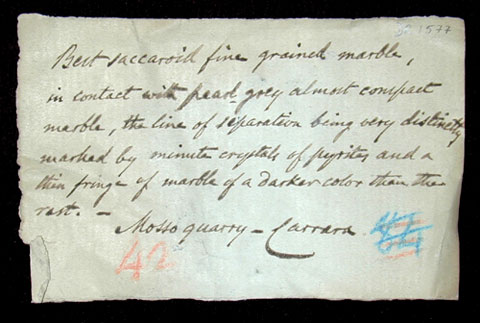 1577
Best saccaroid fine grained marble,
in contact with pearl grey almost compact
marble, the line of separation being very distinctly
marked by minute crystals of pyrites and a
thin fringe of marble of a darker color than the
rest. —
Mosso quarry – Carrara
42